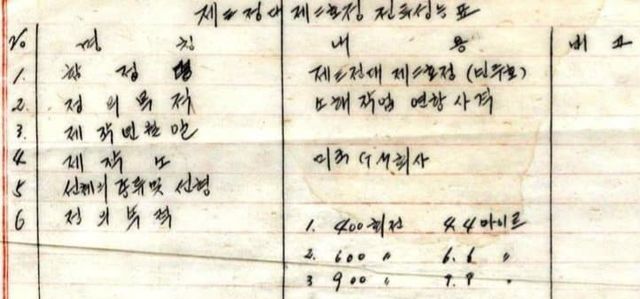 제二정대 제二호정 전투성능표
No 명칭 내용 비고
1. 함정명 제二정대 제二호정 (민두호)
2 정의목적 소해작업 연항사격
3. 제작년월일
4 제작소 미국 회사
5 선체의 종류및 선형
6 정의
1. 400회전 4.4마이르
2. 600 〃 6.6 〃
3 900 〃 9.9 〃